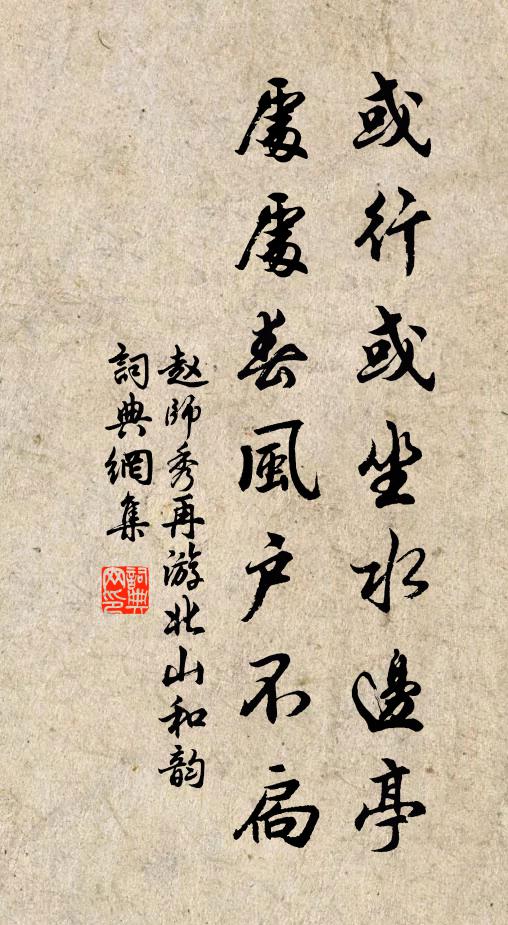 或行或坐水邊亭
處處春風户不扃
赵師秀再游北山和韵
詞典網集
詞典
网印